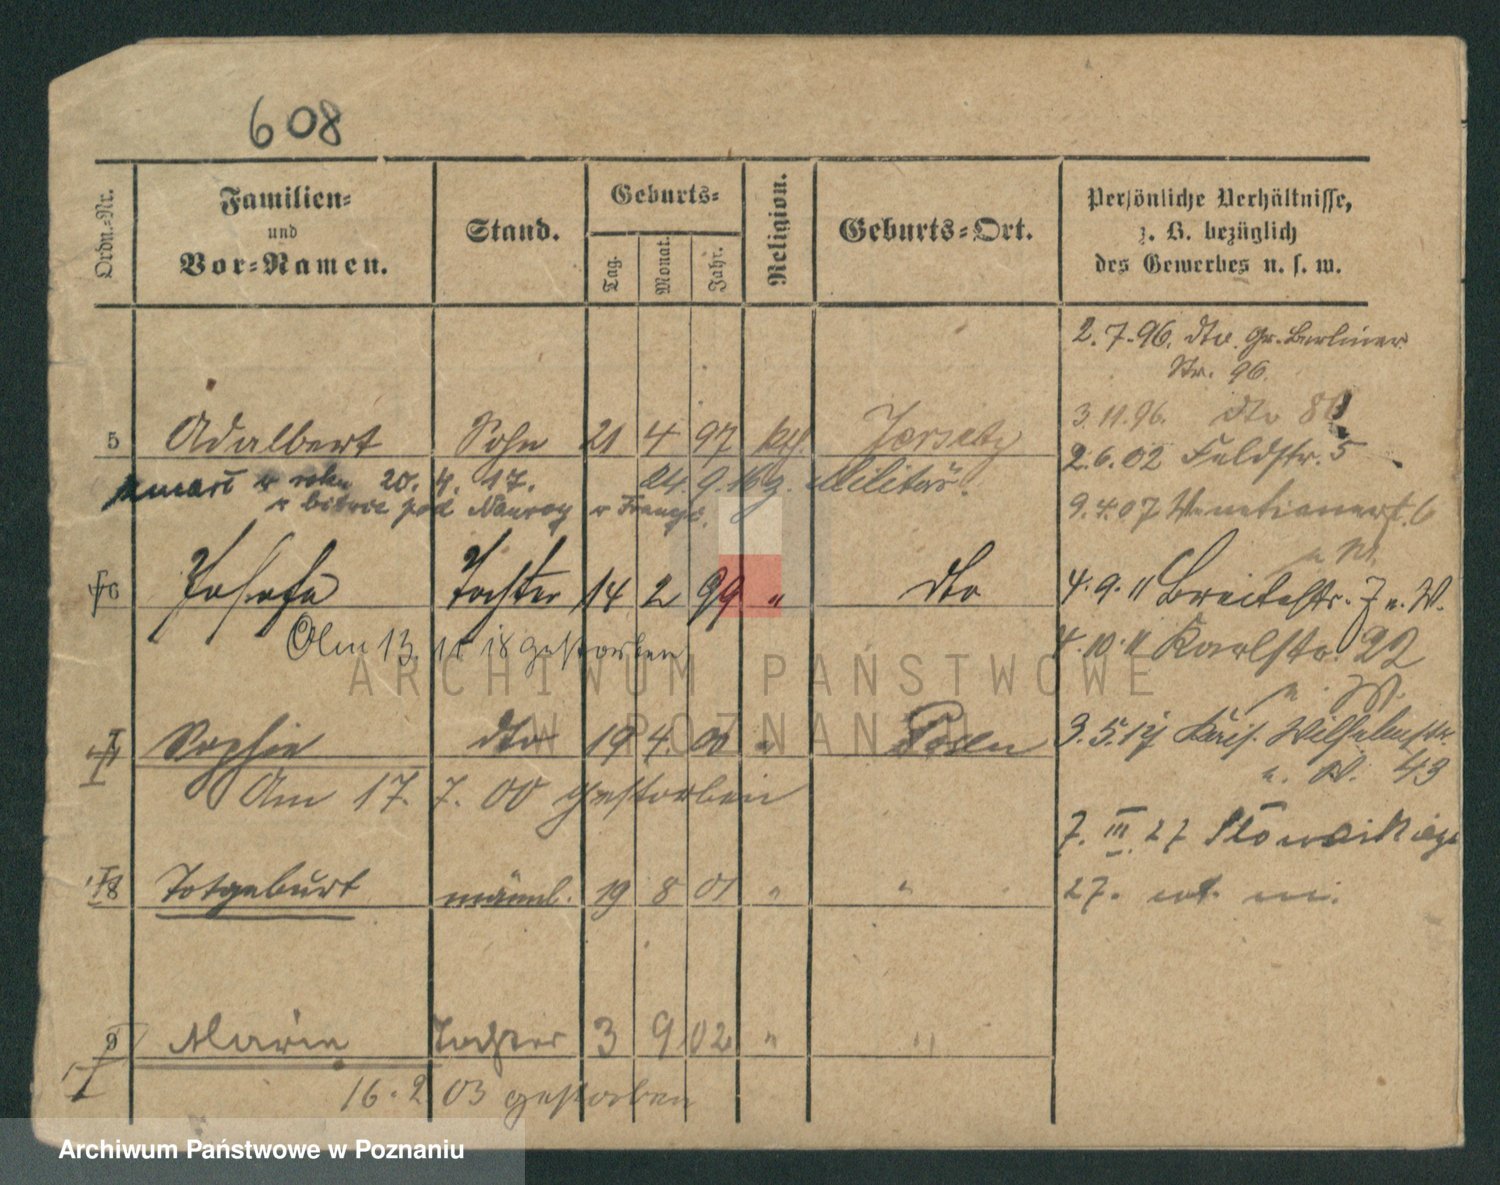 608
Ordn.-Nr.
Familien-
und
Vor-Namen.
Stand.
Geburts-
Tag.
Monat.
Jahr.
Religion.
Geburts-Ort.
Persönliche Verhältnisse,
z. B. bezüglich
des Gewerbes u. s. w.
2.7.96. dto. Gr. Berliner
Str. 96.
3.11.96. dto
5 Adalbert Sohn 21 4 97 kth. Jersitz
2.6.02 Feldstr. 5
zmarł w roku 20. 4. 17. 24.9.16 z. Militär.
w bitwie pod Nauroy w Francji.
9.4.07 Venetianerst. 6
u. W.
6 Josefa Tochter 14 2 99 " dto
4.9.11 Breitestr. 7 u. W.
Am 13. 11 18 gestorben
4.10.11 Karlstr. 22
u. W.
7 Sophie dto 19 4. 00 " Posen
3.5.14 Kais. Wilhelmstr.
u. W. 43
Am 17. 7. 00 gestorben
7. III. 27 Słowackiego
8 Totgeburt männl. 19 8 01 " "
27. wł. m.
9 Marie Tochter 3 9 02 " "
16. 2 03 gestorben
ARCHIWUM PAŃSTWOWE
W POZNANIU
Archiwum Państwowe w Poznaniu